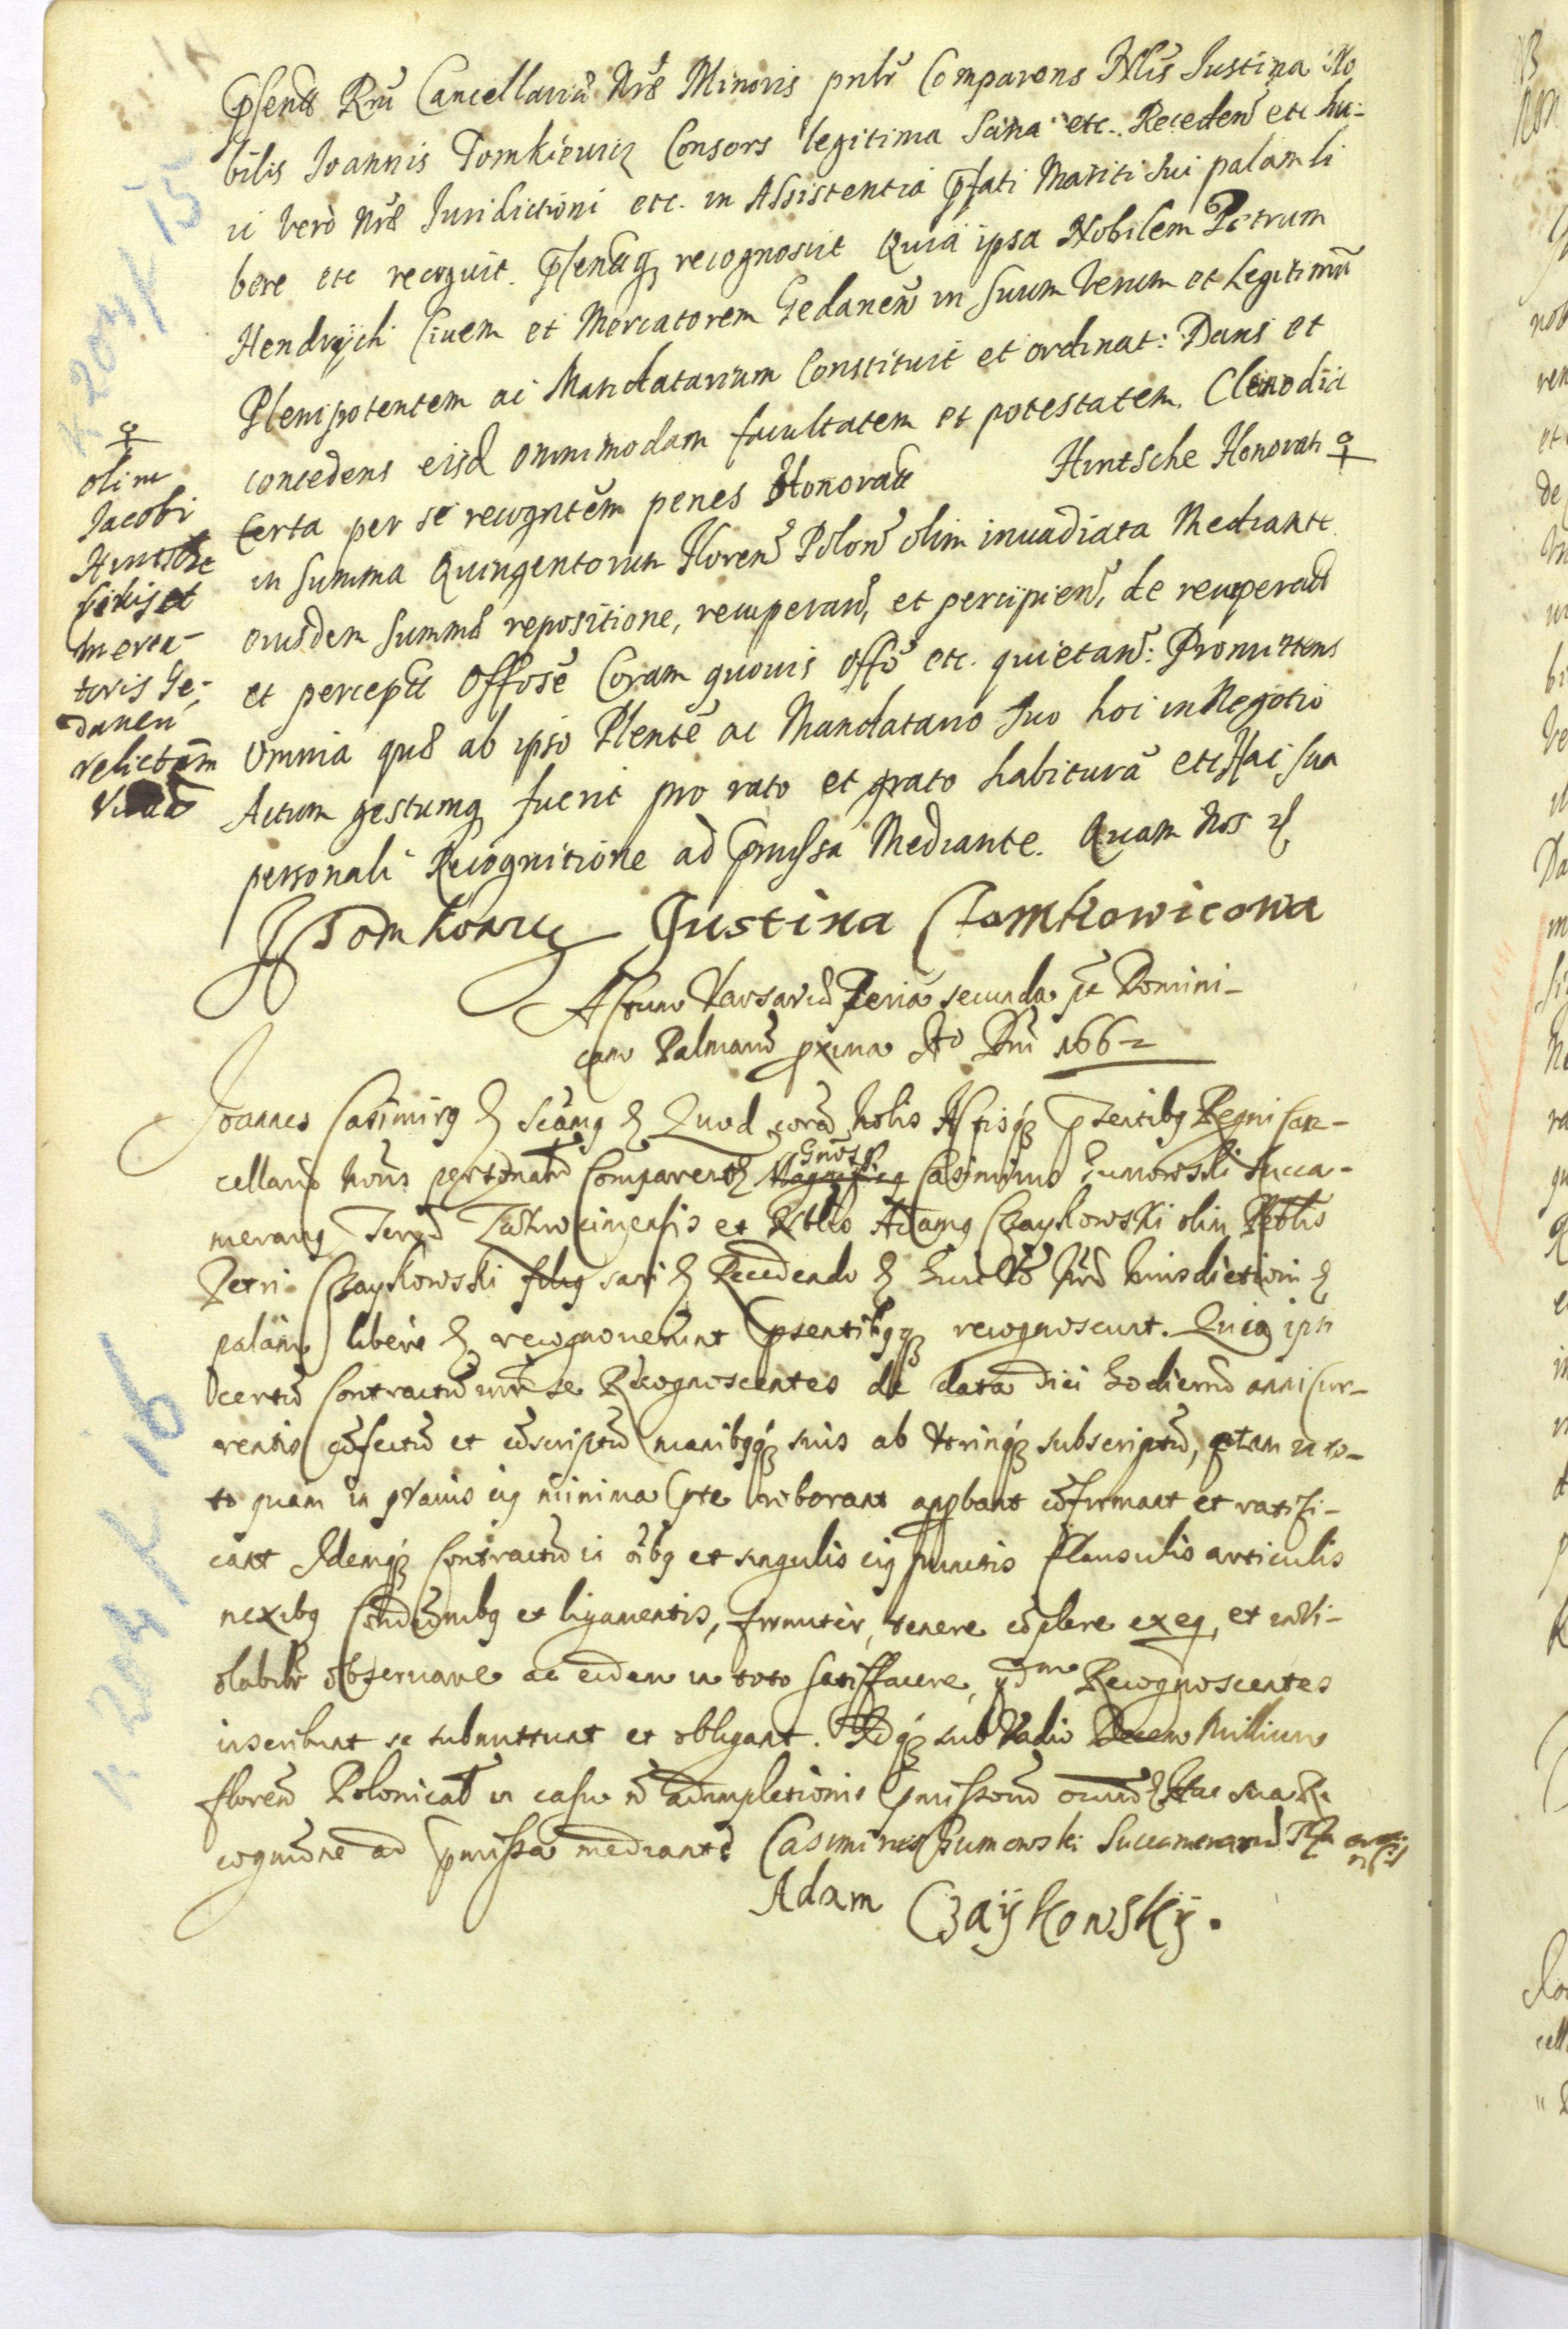 Psentā Rni Cancellariā Nrā Minoris pnlr Comparens Nlis Iustina No
bilis Joannis Tomkiewicz Consors legitima Sana etc. Recedeñ etc hu-
ic vero Nrā Iurisdictioni etc. in Assistentia Pfati Mariti sui palam li
bere etc recoguit. Psentiq recognoscit Quia ipsa Nobilem Petrum
Hendrÿch Ciuem et Mercatorem Gedaneñ in suum Verum et Legitimū
Plenipotentem ac Mandatarium Constituit et ordinat: Dans et
concedens eisd omnimodam facultatem et potestatem. Clenodia
Certa per se recogntem penes Honorati Hintsche Honorati ♀
in summa Quingentorum Floreñ Poloñ olim inuadiata Mediante
eiusdem summā repositione, recuperañ, et percipieñ, de recuperatt
et perceptt Offose Coram quouis Offo etc. quietañ: Promittens
Omnia quā ab ipso Plente ac Mandatario suo hoc in Negotio
Actum gestumq fuerit pro rato et grato habiturā etc Hac sua
personali Recognitione ad Pmissa Mediante. Quam Nos
♀
olim
Jacobi
Hintsche
Ciuis et
merca-
toris Ge-
daneñ
relictam
JTomkowic Justina Tomkowicowa
Actum Varsaviā Feria secunda pt Domini-
cam Palmarū pxima Ao Dni 1662
Joannes Casimirq Scamq Quod corā Nobis Actisq Psentibq Regni Can-
cellariā Nris personatr Comparentq Magnificq Gnosq Casimirus Gumowski Succa-
merarq Terrā et Nblis Adamq Czaykowski olim Nblis
Petri Czaykowski filiq sani Recedendo Huic Vo Nrā Iurisdictioni
palam libere recognouerunt Psentibqq recognoscunt. Quia ipsi
certū Contractū intr se Recognoscentes de data diei hodiernā anni cur-
rentis cōfectū et cōscriptū manibqq suis ab vtrinq subscriptū, tam in to-
to quam in quauis eiq minima Pte roborant appbant cōfirmant et ratifi-
cant Idemq Contractū in oibq et singulis eiq punctis Clausulis articulis
nexibq Condōnibq et ligamentis, firmiter, tenere cōplere exeq, et invi-
olabilr obseruare ac eidem in toto satisfacere, ydm Recognoscentes
inscribunt se submittunt et obligant. Idq sub Vadio Decem Millium
floreñ Polonicał in casu ñ adimpletionis Pmissorū Hac sua Re
cognitōne ad Pmissa mediante Casimirus Gumowski Succamerarā
Adam Czaÿkowskÿ.
K 204/K 15
K 204/K 16